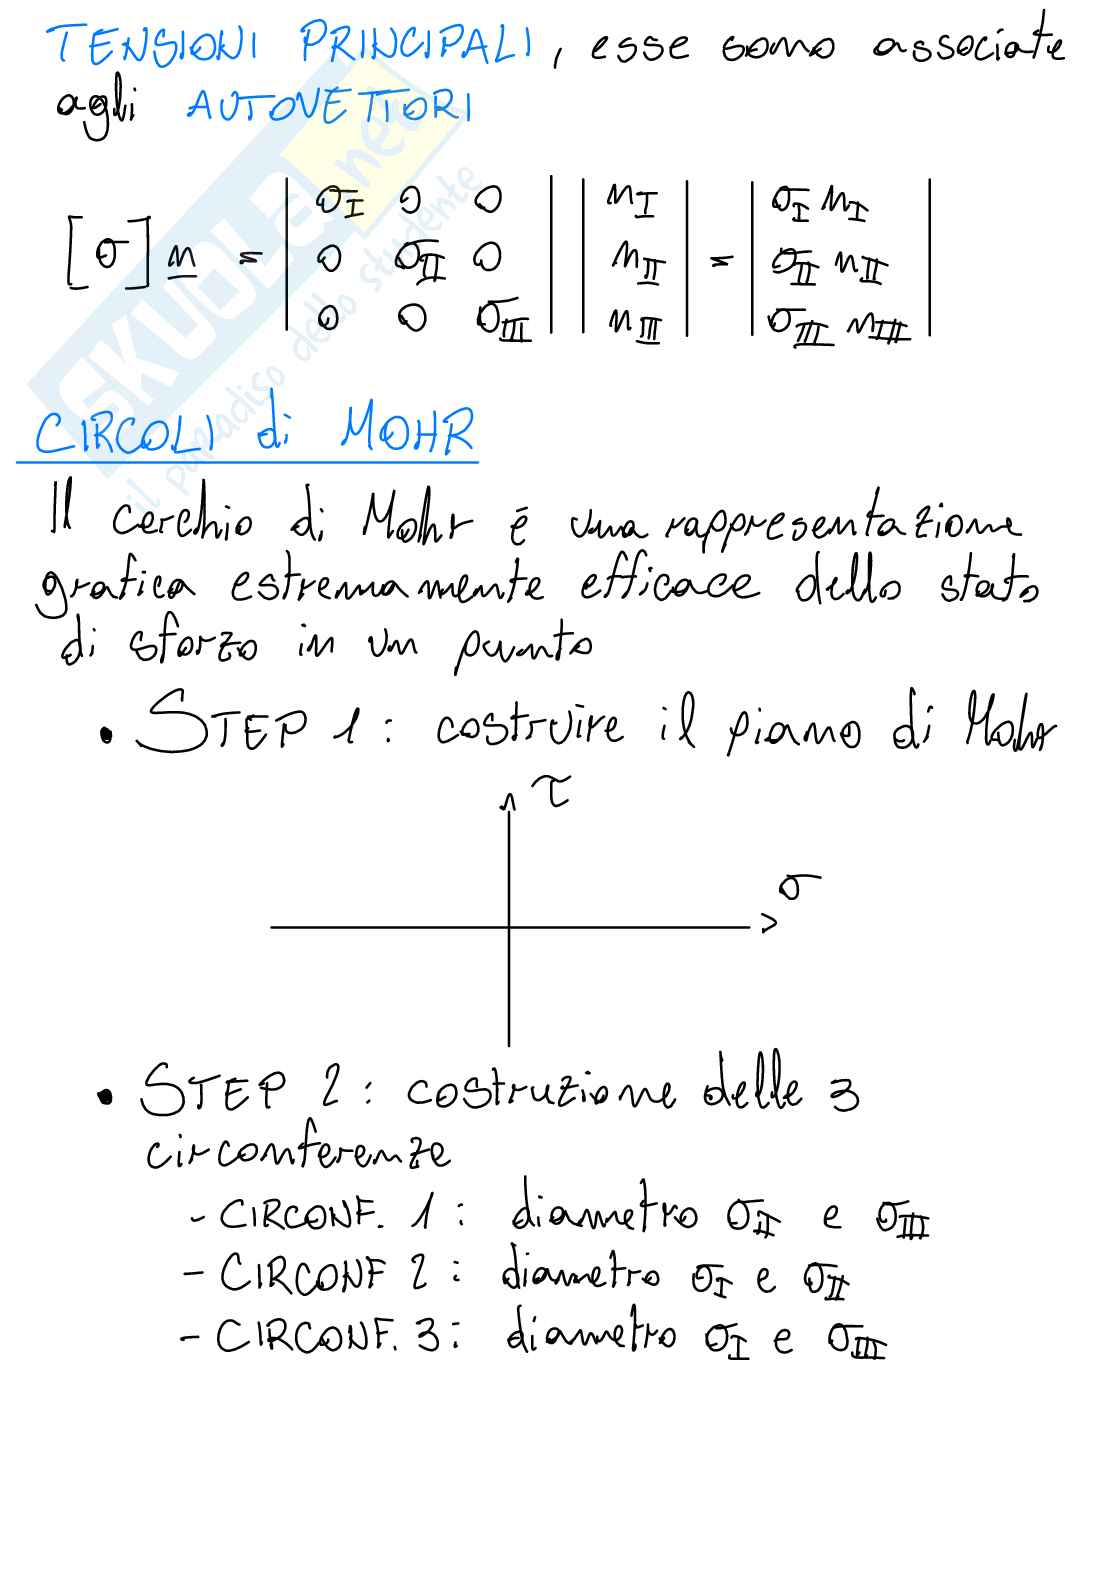 TENSIONI PRINCIPALI, esse sono associate
agli AUTOVETTORI
[σ] n = | σI 0 0 | | nI | = | σI nI |
| 0 σII 0 | | nII | | σII nII |
| 0 0 σIII | | nIII | | σIII nIII |
CIRCOLI di MOHR
Il cerchio di Mohr è una rappresentazione
grafica estremamente efficace dello stato
di sforzo in un punto
• STEP 1 : costruire il piano di Mohr
τ
σ
• STEP 2 : costruzione delle 3
circonferenze
- CIRCONF. 1 : diametro σII e σIII
- CIRCONF 2 : diametro σI e σII
- CIRCONF. 3 : diametro σI e σIII
SKUOLA.net
il paradiso dello studente